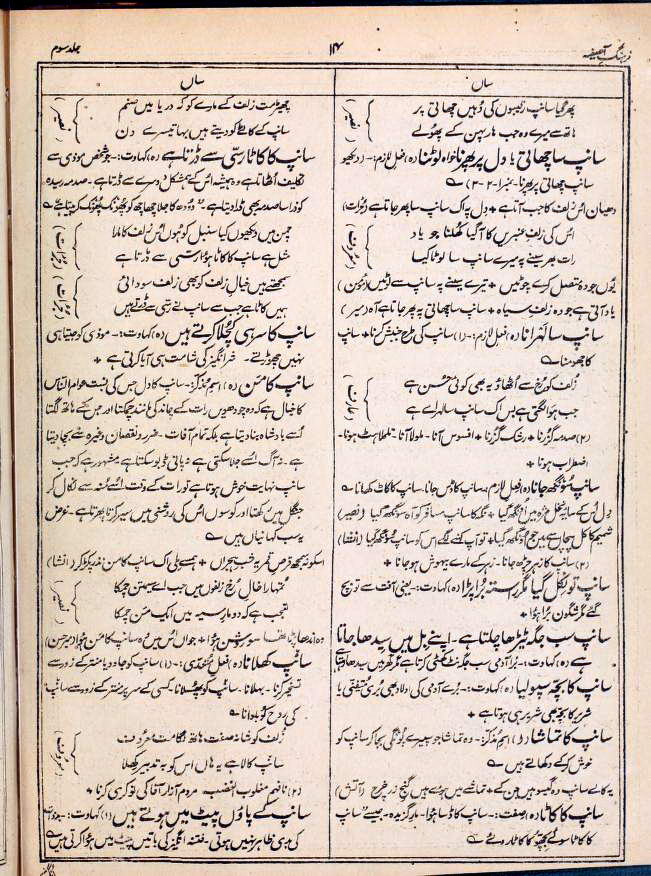 فرہنگ آصفیہ
۱۴
جلد سوم
ساں
پھر گیا سانپ رقیبوں کی وہیں چھاتی پر
ہاتھ سے میرے وہ جب ہار پہن کے پھولے (نصیر)
سانپ سا چھاتی یا دل پر پھرنا خواہ لوٹنا (ہ) فعل لازم:۔ (دیکھو
سانپ چھاتی پر پھرنا۔ نمبر ۱-۲-۳) ؎
دھیان اُس زلف کا جب آتا ہے + دل پہ اک سانپ سا پھر جاتا ہے (جرأت)
اس کی زلفِ عنبریں کا آگیا کھلنا جو یاد
رات بھر سینے پہ میرے سانپ سا لوٹا کیا (معروف)
یوں جو وہ متصل کرے چوٹیں + تیرے سینے پہ سانپ سے لوٹیں
یاد آتی ہے جو وہ زلفِ سیاہ + سانپ سا چھاتی پہ پھر جاتا ہے آہ (میر)
سانپ سا لہرانا (ہ) فعل لازم:۔ (۱) سانپ کی طرح جنبش کرنا + سانپ
کا جھومنا ؎
زلف کو رُخ سے اُٹھاؤ یہ بھی کوئی حُسن ہے
جب ہوا لگتی ہے بس اک سانپ سا لہراے ہے (عارف)
(۲) صدمہ گزرنا + رشک گزرنا + افسوس آنا۔ ملولا آنا۔ تلملاہٹ ہونا۔
اضطراب ہونا +
سانپ سُونگھ جانا (ہ) فعل لازم: سانپ کا ڈس جانا۔ سانپ کا کاٹ کھانا ؎
(۲) سانپ کا زہر چڑھ جانا۔ زہر کے مارے بیہوش ہو جانا +
سانپ تو نکل گیا مگر رستہ بُرا پڑا (ہ) کہاوت:۔ یعنی آفت سے تو بچ
گئے مگر شگون بُرا ہوا +
سانپ سب جگہ ٹیڑھا چلتا ہے۔ اپنے بل میں سیدھا جاتا
ہے (ہ) کہاوت:۔ بُرا آدمی سب جگہ کرتا ہے مگر گھر میں سیدھا
سانپ کا بچہ سپولیا (ہ) کہاوت:۔ بُرے آدمی کی اولاد بھی بُری متفنی یا
شریر کا بچہ بھی شریر ہی ہوتا ہے +
سانپ کا تماشا (ا) اسم مذکر:۔ وہ تماشا جو سپیرے پُونگی بجا کر سانپ کو
خوش کر کے دکھاتے ہیں ؎
یہ کالے سانپ وہ گیسو ہیں جن کے + تماشے میں ہوئے ہیں گنج زر خرچ (آتش)
سانپ کا کاٹا (ہ) صفت:۔ سانپ کا ڈسا ہوا۔ مار گزیدہ۔ جیسے "سانپ
کا کاٹا سوئے بچھو کا کاٹا روئے ؎
ساں
چھیڑ مت زلف کے مارے کو کہ دریا میں صنم
سانپ کے کاٹے کو دیتے ہیں بہا تیسرے دن (نصیر)
سانپ کا کاٹا رسّی سے ڈرتا ہے (ہ) کہاوت:۔ جو شخص موذی سے
تکلیف اُٹھاتا ہے وہ ہمیشہ اُس کے ہمشکل دوسرے سے ڈرتا ہے۔ صدمہ رسیدہ
کو ذرا سا صدمہ بھی ڈرا دیتا ہے۔ "دودھ کا جلا چھاچھ کو پھونک پھونک کر پیتا ہے" ؎
چمن میں دیکھوں کیا سنبل کو ہوں اُس زلف کا مارا
مثل ہے سانپ کا کاٹا ہوا رسّی سے ڈرتا ہے (جرأت)
سمجھتے ہیں خیالِ زلف کو بھی زلف سودائی
ہیں کاٹا ہے جب سے سانپ نے رسّی سے ڈرتے ہیں (جرأت)
سانپ کا سر ہی کچلا کرتے ہیں (ہ) کہاوت:۔ موذی کو جیتا ہی
نہیں چھوڑتے۔ شر انگیز کی شامت ہی آیا کرتی ہے +
سانپ کا مَن (ہ) اسم مذکر:۔ سانپ کا دل جس کی نسبت عوام الناس
کا خیال ہے کہ وہ چودھویں رات کے چاند کی مانند چمکتا اور جس کے ہاتھ لگتا
اُسے بادشاہ بنا دیتا ہے بلکہ تمام آفات۔ ضرر و نقصان وغیرہ سے بچا دیتا
ہے۔ نہ آگ اُسے جلا سکتی ہے نہ پانی ڈبو سکتا ہے مشہور ہے کہ جب
سانپ نہایت خوش ہوتا ہے تو رات کے وقت اُسے منہ سے نکال کر
جنگل میں رکھتا اور کوسوں اُس کی روشنی میں سیر کرتا پھرتا ہے۔ غرض
یہ سب کہانیاں ہیں ؎
اسکو نہ سمجھ قرص قمر یہ شبِ ہجراں + ہے اک سانپ کا من نذر پکڑ کر (انشا)
تمہارا خالِ رُخ زلفوں میں جب اے سیمتن چمکا
تعجب ہے کہ دو مارِ سیہ میں ایک من چمکا (نصیر)
سانپ کھلانا (ہ) فعل متعدی:۔ (۱) سانپ کو جادو یا منتر کے زور سے
تسخیر کرنا۔ بہلانا۔ سانپ کو پھسلانا۔ کسی کے سر پر منتر کے زور سے سانپ
کی روح کو بلوانا ؎
زلف کو شانہ صفت ہاتھ لگا مت معروف
سانپ کالا ہے یہ ہاں اس کو بہ تدبیر کھلا (معروف)
(۲) ظالم مغلوب الغضب۔ مردم آزار آقا کی نوکری کرنا +
سانپ کے پاؤں پیٹ میں ہوتے ہیں (ا) کہاوت:۔
کی بدی ظاہر نہیں ہوتی۔ فتنہ انگیز کی باتیں پیٹ میں ہوا کرتی ہیں